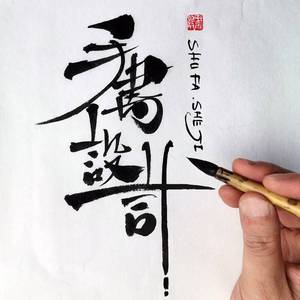 手寫設計
SHU FA.SHEJI